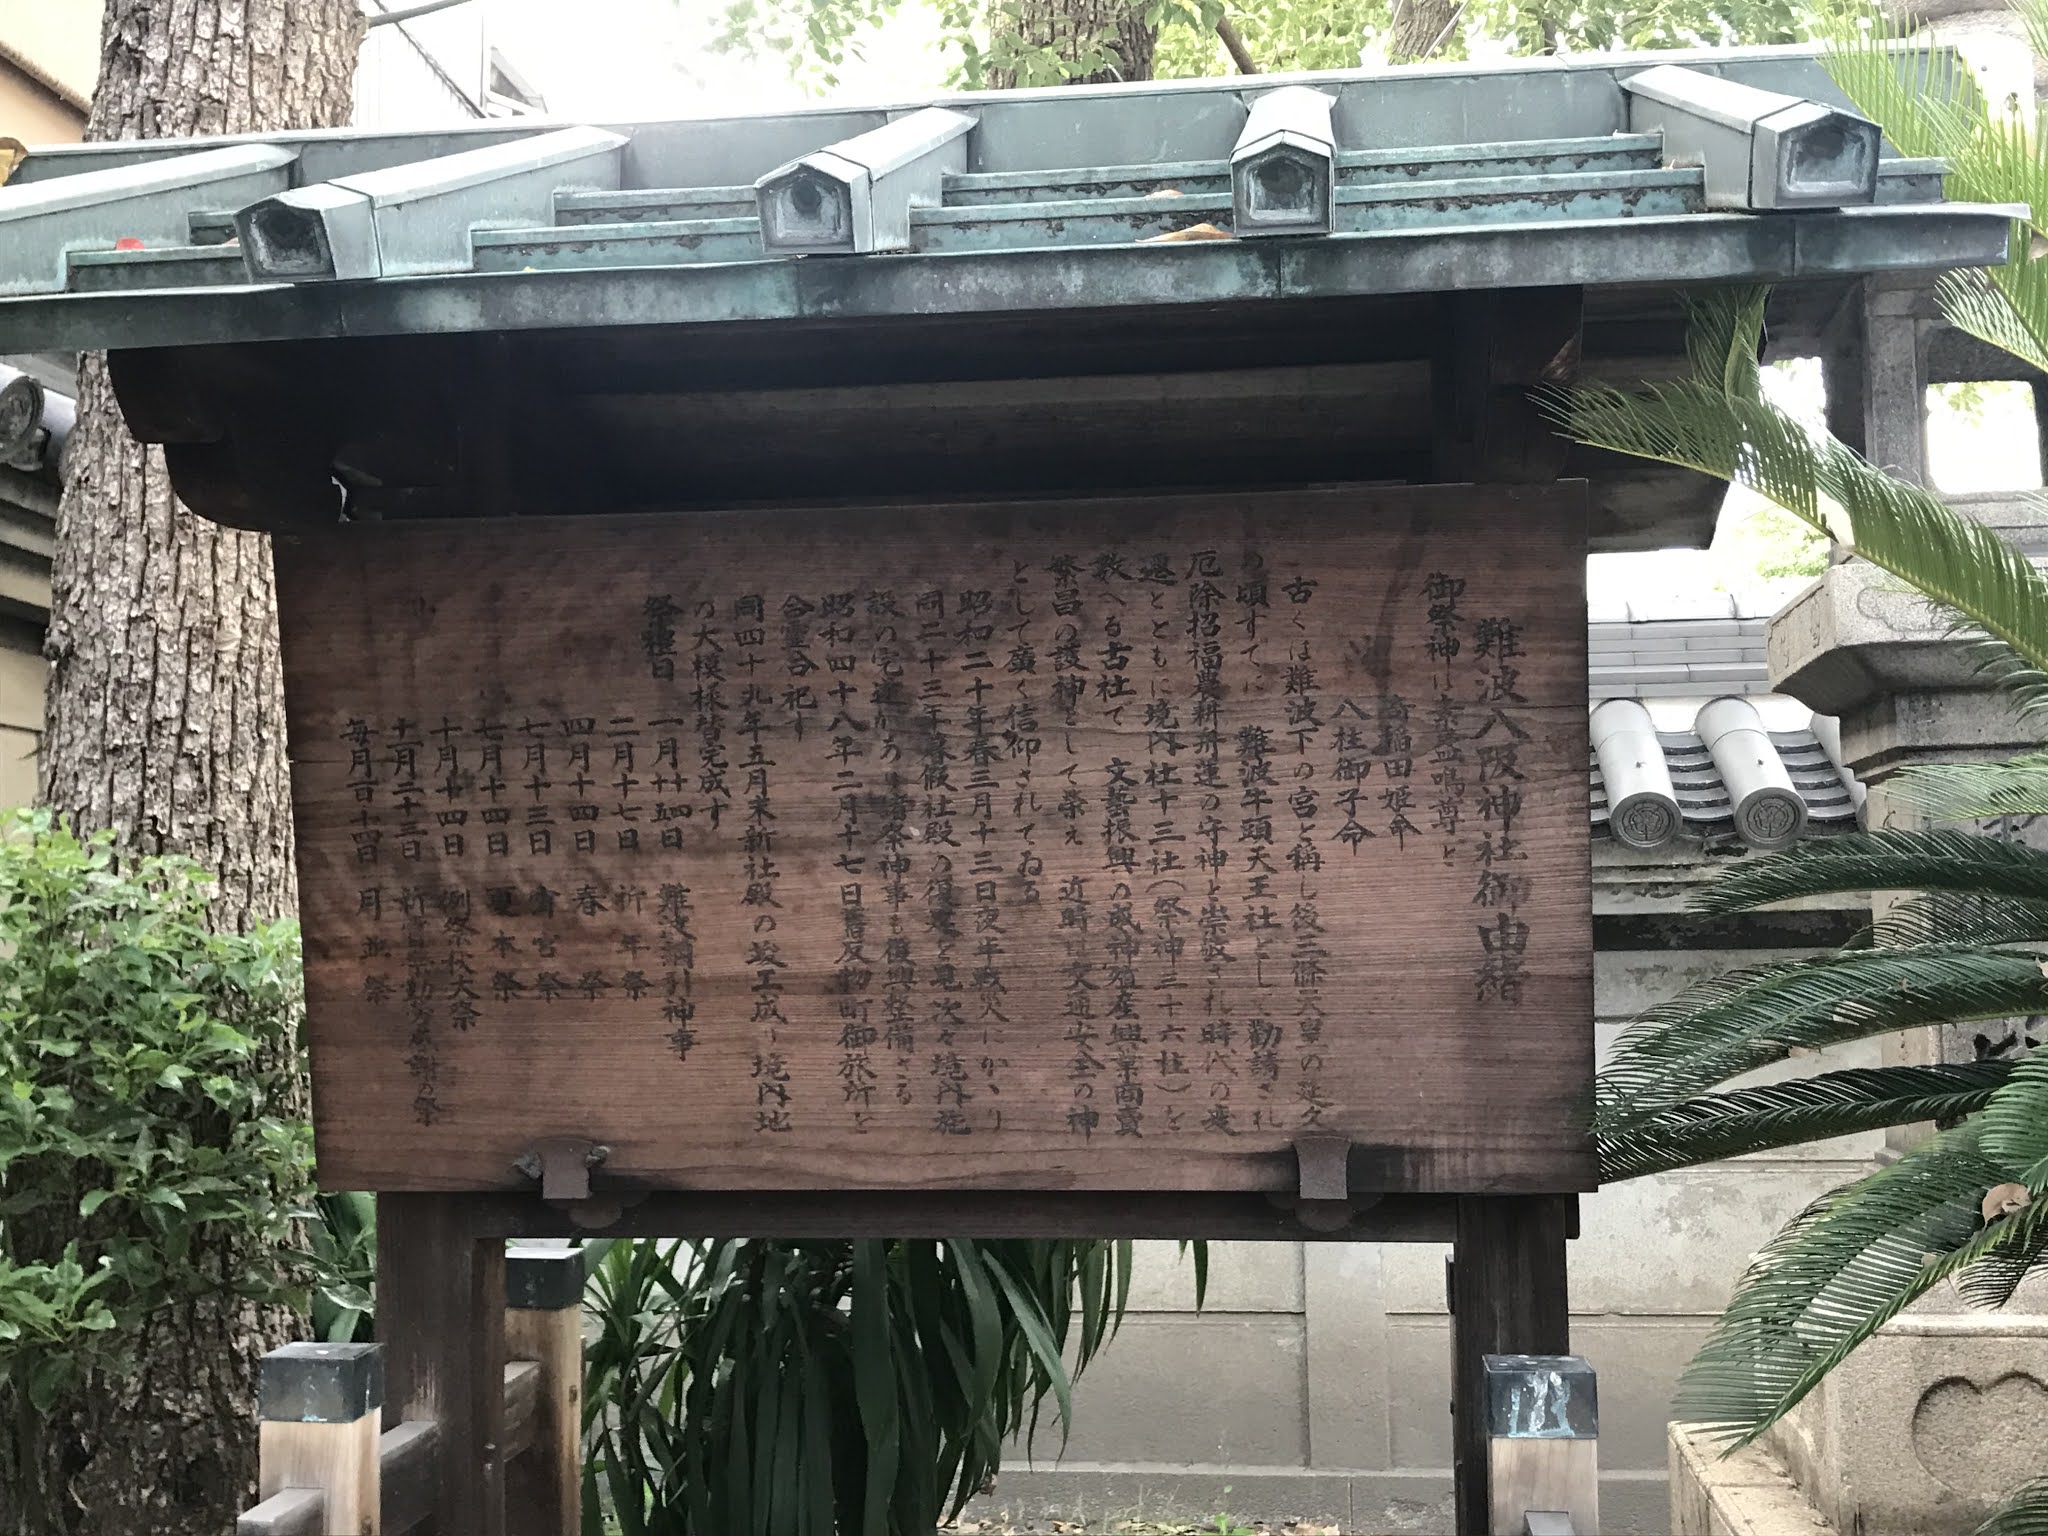 難波八阪神社御由緒
御祭神は素盞嗚尊と
奇稲田姫命
八柱御子命
古くは難波下の宮と稱し後三條天皇の延久
の頃すでに 難波牛頭天王社として勧請され
厄除招福農耕舟運の守神と崇敬され時代の変
遷とともに境内社十三社(祭神三十六柱)を
数へる古社て 文藝振興の威神殖産興業商賣
繁昌の護神として栄え 近時は交通安全の神
として廣く信仰されてゐる
昭和二十年春三月十三日夜半戦災にかゝり
同二十三年春假社殿の復建を見次々境内施
設の完遂があり諸祭神事も復興整備さる
昭和四十八年二月十七日舊反物町御旅所を
合霊合祀す
同四十九年五月末新社殿の竣工成り境内地
の大模様替完成す
祭禮日
一月廿四日 難波綱引神事
二月十七日 祈年祭
四月十四日 春祭
七月十三日 宵宮祭
七月十四日 夏本祭
十月十四日 例祭秋大祭
十一月二十三日 新嘗祭勤労感謝の祭
毎月一日十四日 月並祭